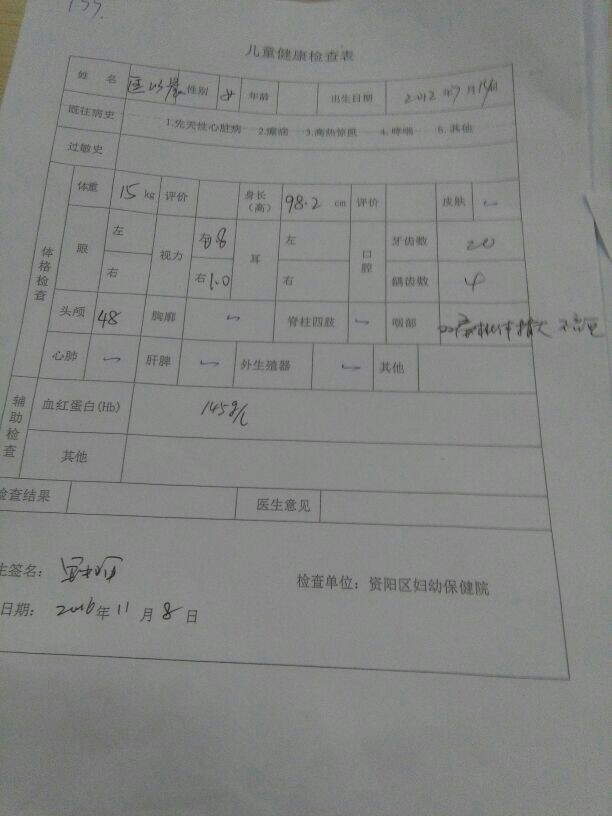 儿童健康检查表
姓 名 性别 女 年龄 出生日期 2012 年 7 月 15 日
既往病史 1.先天性心脏病 2.癫痫 3.高热惊厥 4.哮喘 5.其他
过敏史
体格检查 体重 15 kg 评价 身长（高） 98.2 cm 评价 皮肤
眼 左 视力 左 耳 左 口腔 牙齿数 20
右 右 1.0 右 龋齿数 4
头颅 48 胸廓 脊柱四肢 咽部
心肺 肝脾 外生殖器 其他
辅助检查 血红蛋白(Hb) 145g/L
其他
检查结果 医生意见
生签名： 检查单位：资阳区妇幼保健院
日期： 2016 年 11 月 8 日